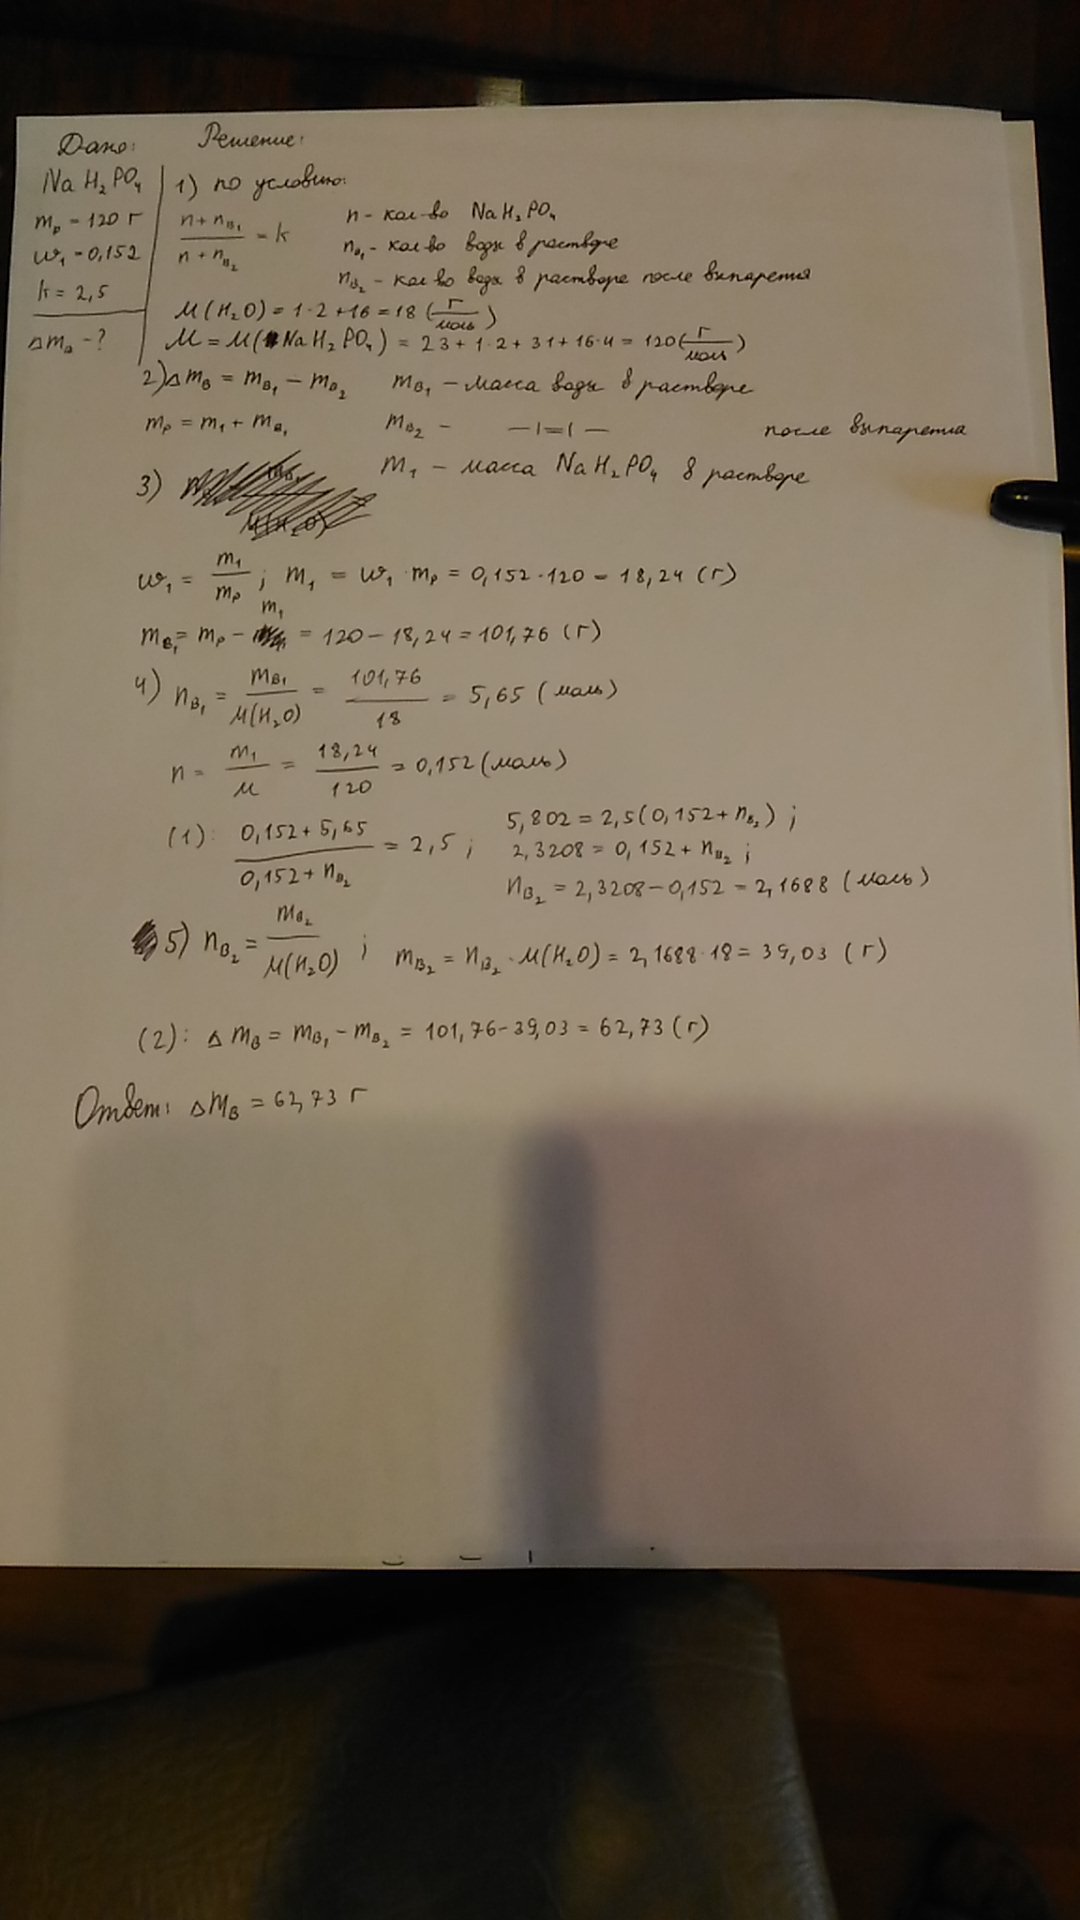 Дано: Решение:
NaH₂PO₄ 1) по условию:
mₚ = 120 г
ω₁ = 0,152
k = 2,5
Δmв - ?
(n + nв₁)/(n + nв₂) = k
n - кол-во NaH₂PO₄
nв₁ - кол-во воды в растворе
nв₂ - кол-во воды в растворе после выпарения
M(H₂O) = 1·2 + 16 = 18 (г/моль)
M = M(NaH₂PO₄) = 23 + 1·2 + 31 + 16·4 = 120 (г/моль)
2) Δmв = mв₁ - mв₂ mв₁ - масса воды в растворе
mₚ = m₁ + mв₁ mв₂ - —|=|— после выпарения
m₁ - масса NaH₂PO₄ в растворе
3)
ω₁ = m₁/mₚ ; m₁ = ω₁ · mₚ = 0,152 · 120 = 18,24 (г)
mв₁ = mₚ - m₁ = 120 - 18,24 = 101,76 (г)
4) nв₁ = mв₁/M(H₂O) = 101,76/18 = 5,65 (моль)
n = m₁/M = 18,24/120 = 0,152 (моль)
(1): (0,152 + 5,65)/(0,152 + nв₂) = 2,5 ; 5,802 = 2,5(0,152 + nв₂) ;
2,3208 = 0,152 + nв₂ ;
nв₂ = 2,3208 - 0,152 = 2,1688 (моль)
5) nв₂ = mв₂/M(H₂O) ; mв₂ = nв₂ · M(H₂O) = 2,1688 · 18 = 39,03 (г)
(2): Δmв = mв₁ - mв₂ = 101,76 - 39,03 = 62,73 (г)
Ответ: Δmв = 62,73 г